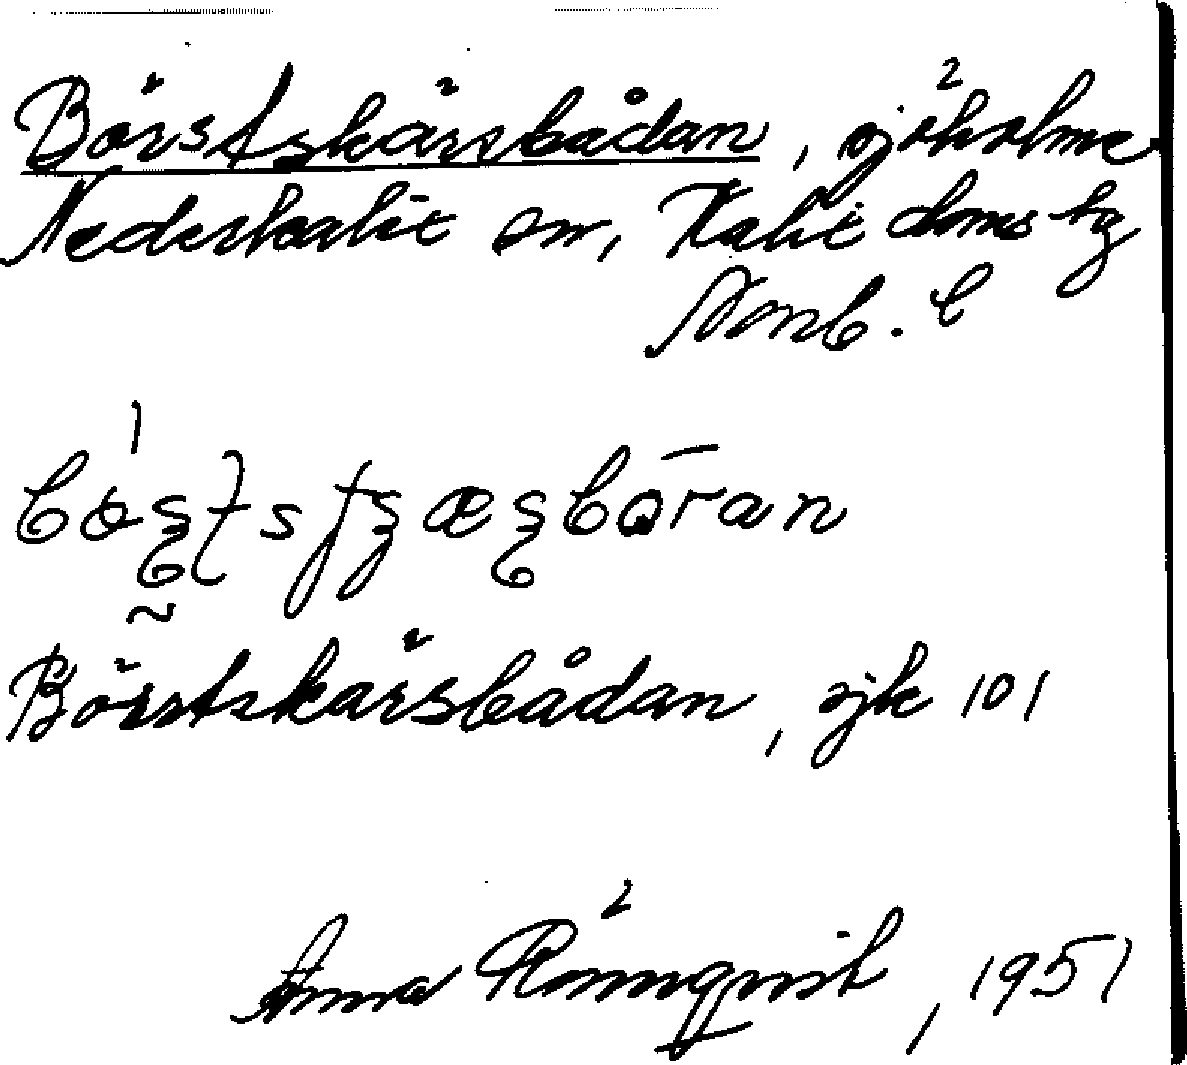 Börstskärsbådan, sjöholme
Nederkalix sn, Kalix doms tg
Norrb. l
Börstskärsbådan, sjk 101
Anna Rönnqvist, 1951